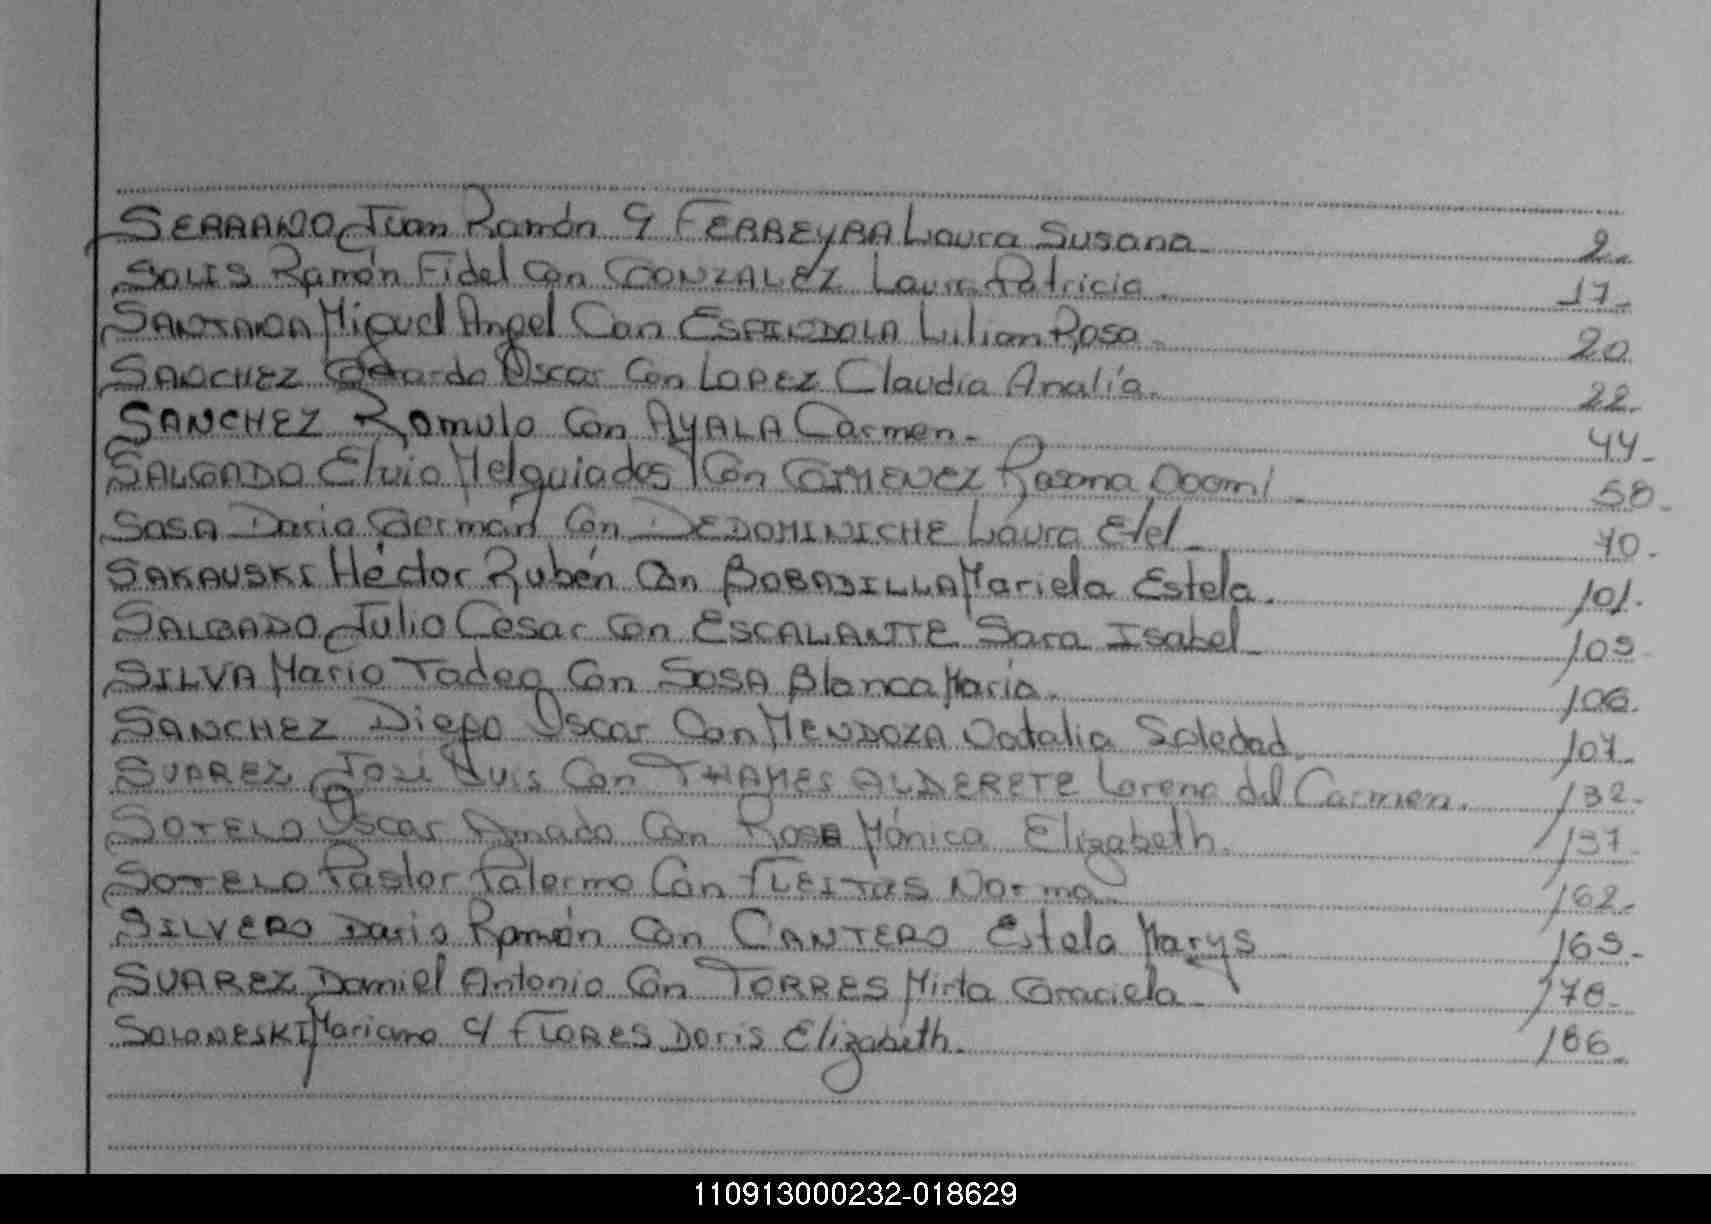 SERRANO Juan Ramón c/ FERREYRA Laura Susana 2.
SOLIS Ramón Fidel Con GONZALEZ Laura Patricia 17.
SANTANA Miguel Angel Con ESPINDOLA Lilian Rosa 20
SANCHEZ Oscar Con LOPEZ Claudia Analía. 22.
SANCHEZ Romulo Con AYALA Carmen. 44.
SALGADO Elvio Melquiades Con GIMENEZ Noemí 58.
SOSA Dario German Con DEDOMINICHE Laura Etel 70.
SAKAUSKI Héctor Rubén Con BOBADILLA Mariela Estela. 101.
SALGADO Julio Cesar Con ESCALANTE Sara Isabel 103
SILVA Mario Tadeo Con SOSA Blanca María. 106.
SANCHEZ Diego Oscar Con MENDOZA Natalia Soledad 107.
SUAREZ José Luis Con THAMES ALDERETE Lorena del Carmen. 132.
SOTELO Oscar Amado Con Mónica Elizabeth. 137.
SOTELO Pastor Palermo Con FLEITAS Norma 162.
SILVERO Dario Ramón Con CANTERO Estela Marys 163.
SUAREZ Daniel Antonio Con TORRES Mirta Graciela 178.
SOLONESKI Mariano c/ FLORES Doris Elizabeth. 186
110913000232-018629